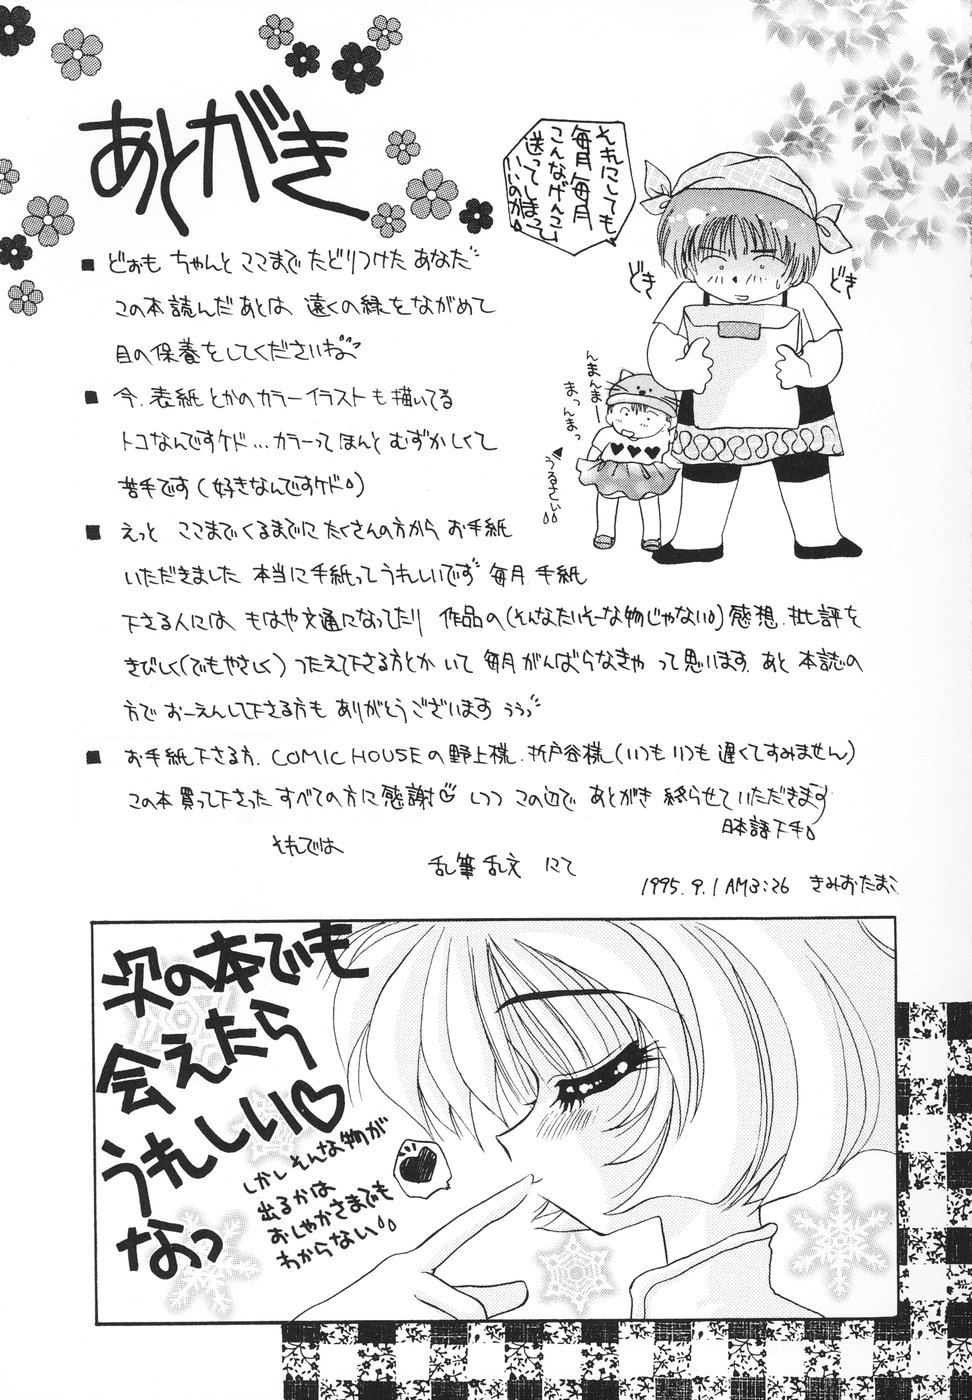 あとがき
それにしても
毎月毎月
こんなげんこ
送ってしまって
いいのか
どき
どき
んまんまー
まっんまっ
うるさい
■ どぉも ちゃんと ここまで たどりつけた あなた
この本 読んだ あとは、遠くの緑を ながめて
目の保養を してくださいね
■ 今、表紙とかのカラーイラストも描いてる
トコなんですケド…カラーって ほんと むずかしくて
苦手です(好きなんですケド)
■ えっと ここまでくるまでに たくさんの方から お手紙
いただきました 本当に手紙って うれしいです 毎月 手紙
下さる人には、もはや文通になってたり 作品の(そんなたいそーな物じゃない)感想、批評を
きびしく(でもやさしく) つたえて下さる方とか いて 毎月がんばらなきゃ って思います あと 本誌の
方で おーえんして下さる方も ありがとうございます ううっ
■ お手紙下さる方、COMIC HOUSEの野上様、折戸谷様(いつもいつも遅くてすみません)
この本 買って下さった すべての方に感謝 しつつ この辺で あとがき 終らせていただきます
日本語下手
それでは
乱筆乱文 にて
1995.9.1 AM3:26 きみおたまこ
次の本でも
会えたら
うれしい♡
なっ
しかしそんな物が
出るかは
おしゃかさまでも
わからない